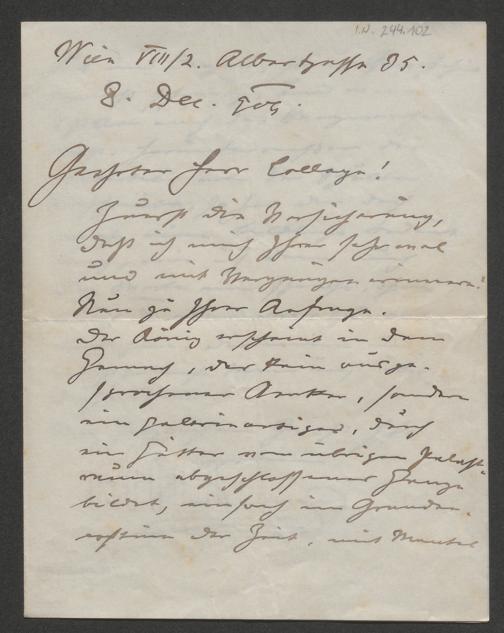 I.N. 244.102
Wien VIII/2. Albertgasse 35.
8. Dec. 905.
Geehrter Herr College!
Zuerst die Versicherung,
daß ich mich Ihrer sehr wol
und mit Vergnügen erinnere.
Nun zu Ihrer Anfrage.
Der König erscheint in dem
Gemach, das kein ausge-
sprochener, sondern
ein galerieartiger, durch
ein Gitter vom übrigen Palast-
raum abgeschlossener Gang
bildet, einfach im Granden-
costüm der Zeit, mit Mantel